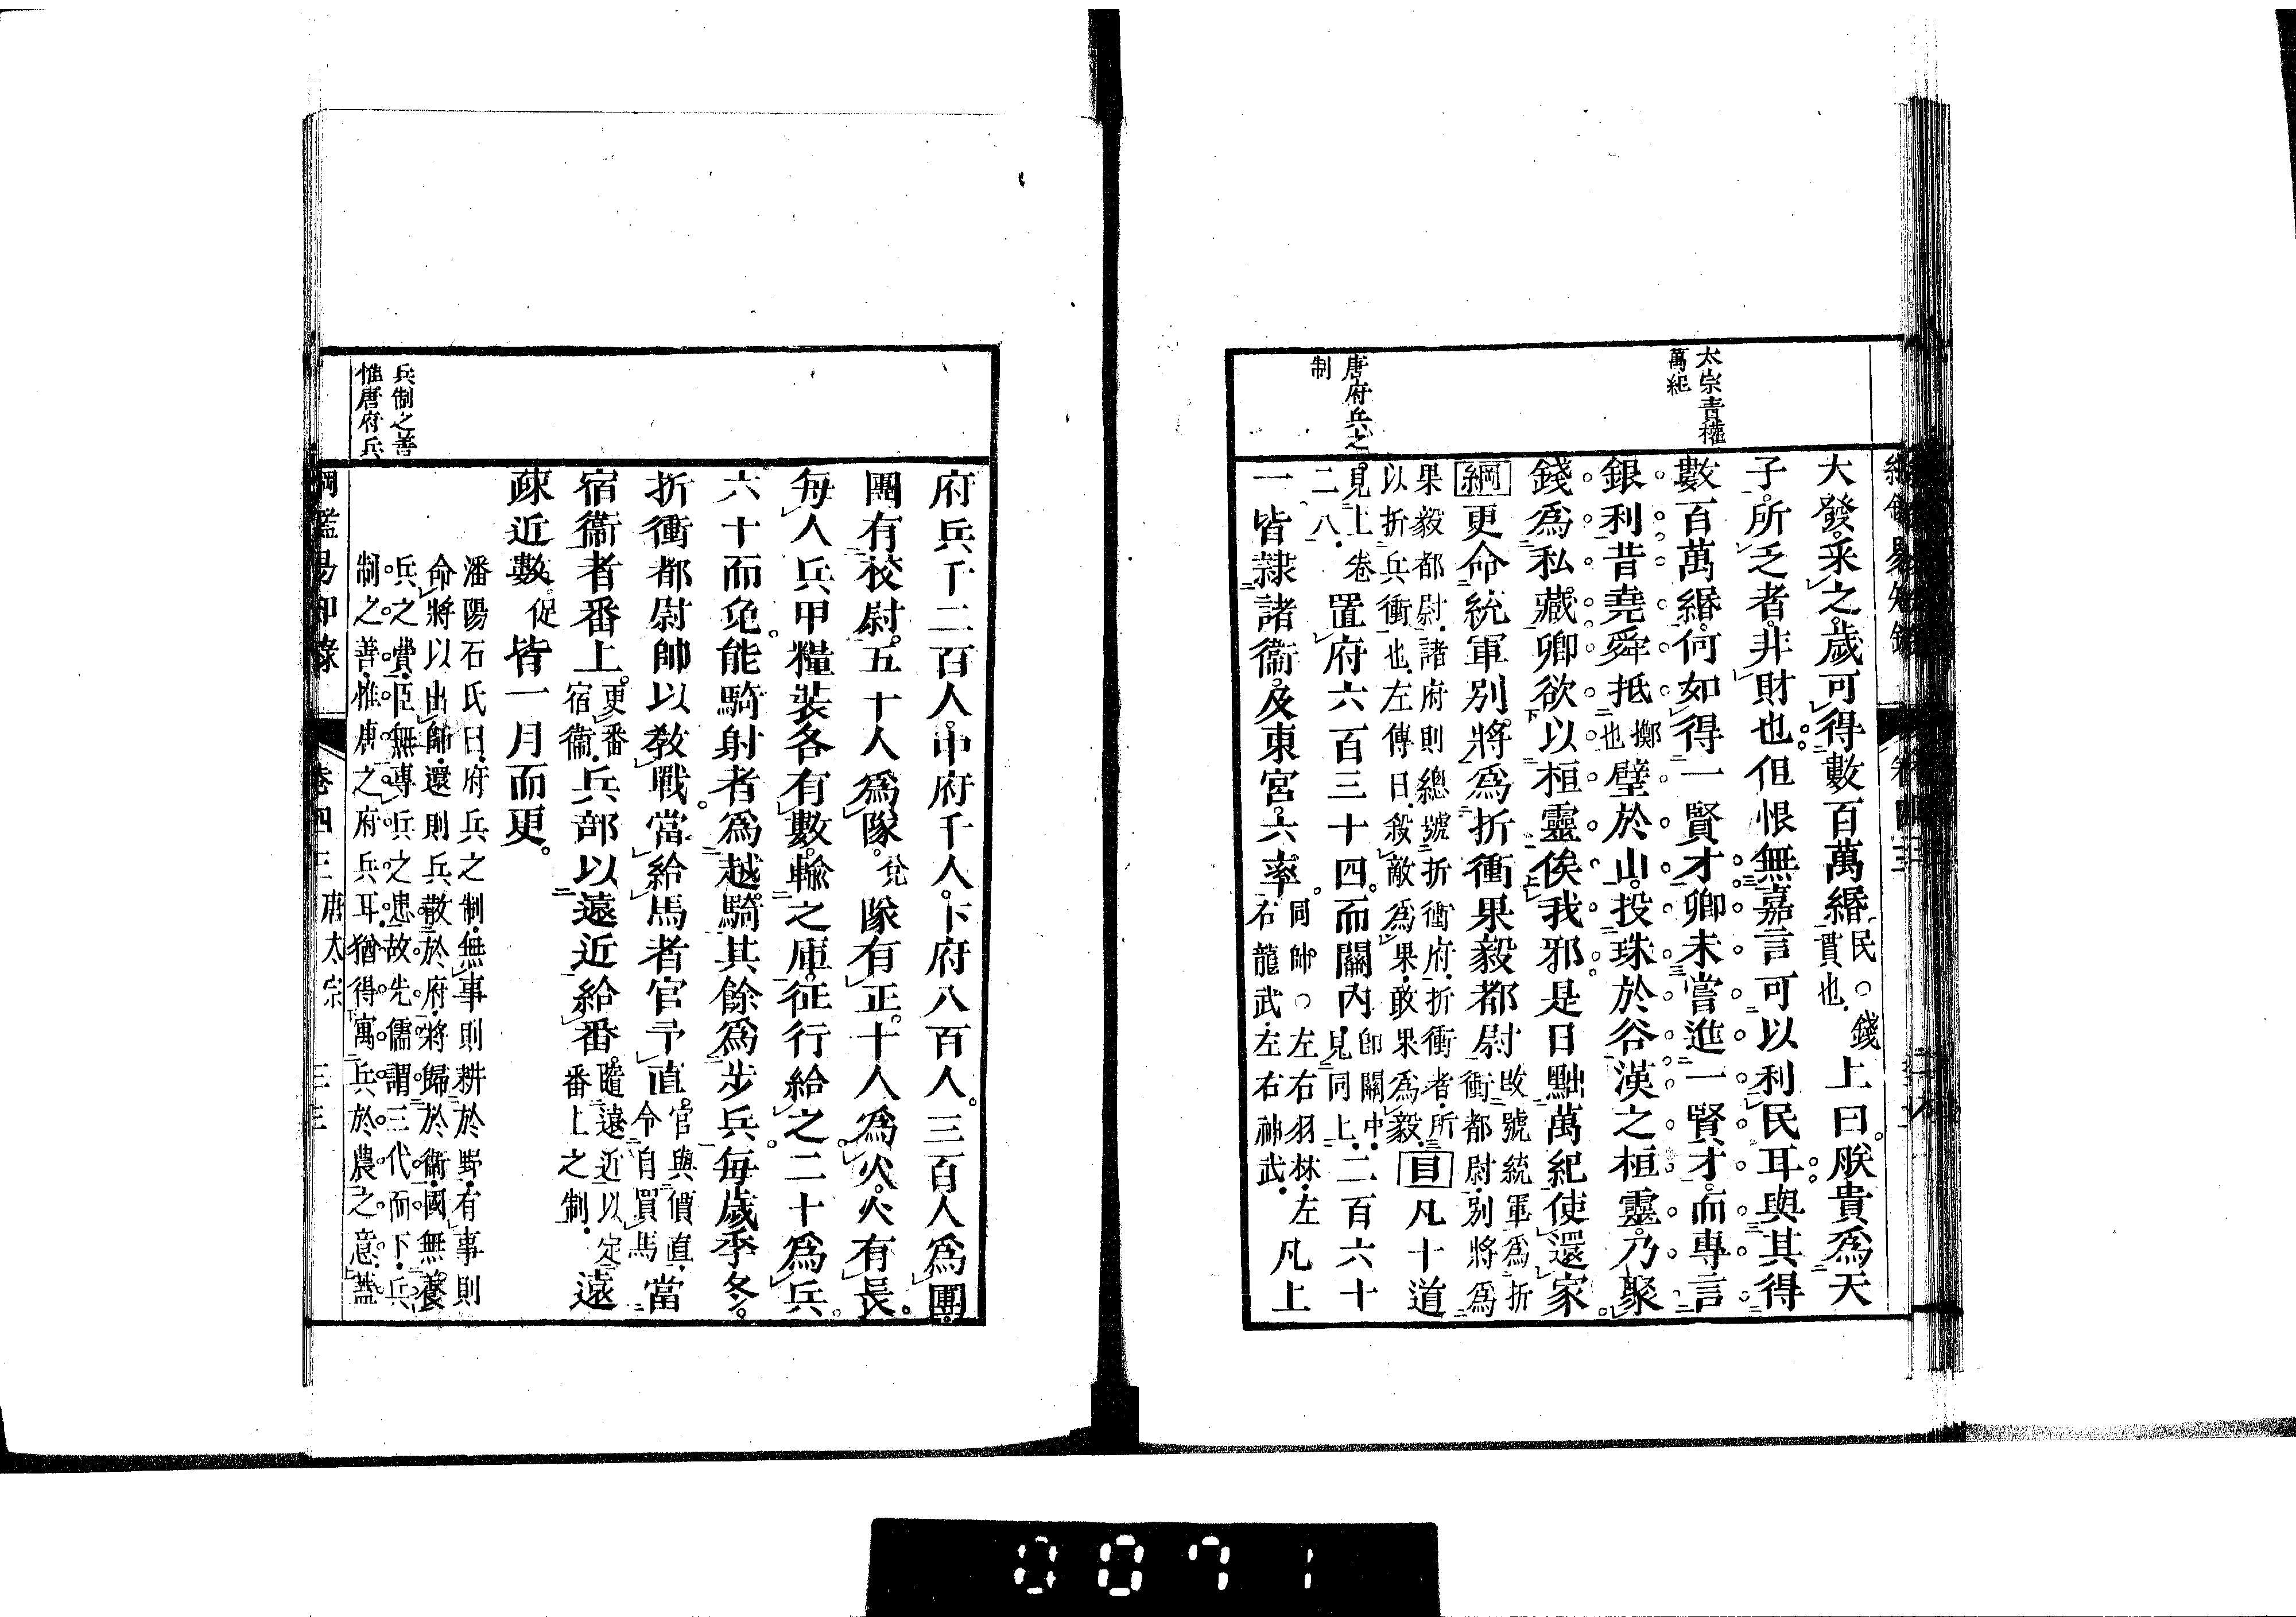 太宗責權
萬紀
唐府兵之
制
大發采之歲可得數百萬緡民○錢貫也上曰朕貴爲天
子所乏者非財也但恨無嘉言可以利民耳與其得
數百萬緡何如得一賢才卿未嘗進一賢才而專言
銀利昔堯舜抵擲也璧於山投珠於谷漢之桓靈乃聚
錢爲私藏卿欲以桓靈俟我邪是日黜萬紀使還家
綱更命統軍別將爲折衝果毅都尉改號統軍爲折衝都尉別將爲
果毅都尉諸府則總號折衝府折衝者所以折兵衝也左傳曰殺敵爲果敢果爲毅目凡十道
見上卷二八置府六百三十四而關內卽關中見同上二百六十
一皆隸諸衞及東宮六率同帥○左右羽林左右龍武左右神武凡上
府兵千二百人中府千人下府八百人三百人爲團
團有校尉五十人爲隊兌隊有正十人爲火火有長
每人兵甲糧裝各有數輸之庫征行給之二十爲兵
六十而免能騎射者爲越騎其餘爲步兵每歲季冬
折衝都尉帥以敎戰當給馬者官予直官與價直令自買馬當
宿衞者番上更番宿衞兵部以遠近給番隨遠近以定番上之制遠
疎近數促皆一月而更
潘陽石氏曰府兵之制無事則耕於野有事則
命將以出師還則兵散於府將歸於衞國無養
兵之費臣無專兵之患故先儒謂三代而下兵
制之善惟唐之府兵耳猶得寓兵於農之意蓋
兵制之善
惟唐府兵
綱鑑易知錄 卷四三 唐太宗 三三
0071